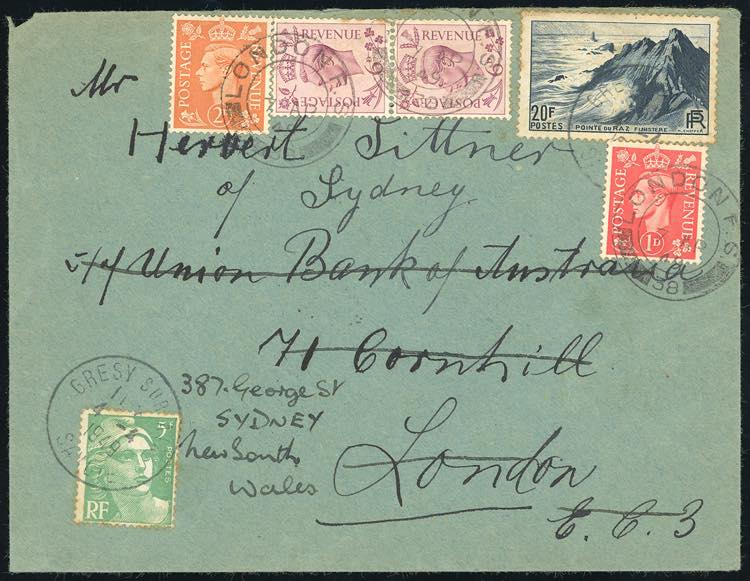 POSTAGE REVENUE
REVENUE POSTAGE
REVENUE POSTAGE
LONDON F.S.
20F
POSTES POINTE DU RAZ FINISTERE
RF
Mr
Herbert Tittner
of Sydney
POSTAGE REVENUE
1D
LONDON F.S.
38
Union Bank of Australia
71 Cornhill
London
E.C.3
387 George St
SYDNEY
New South
Wales
GRESY SUR
5F
POSTES
RF